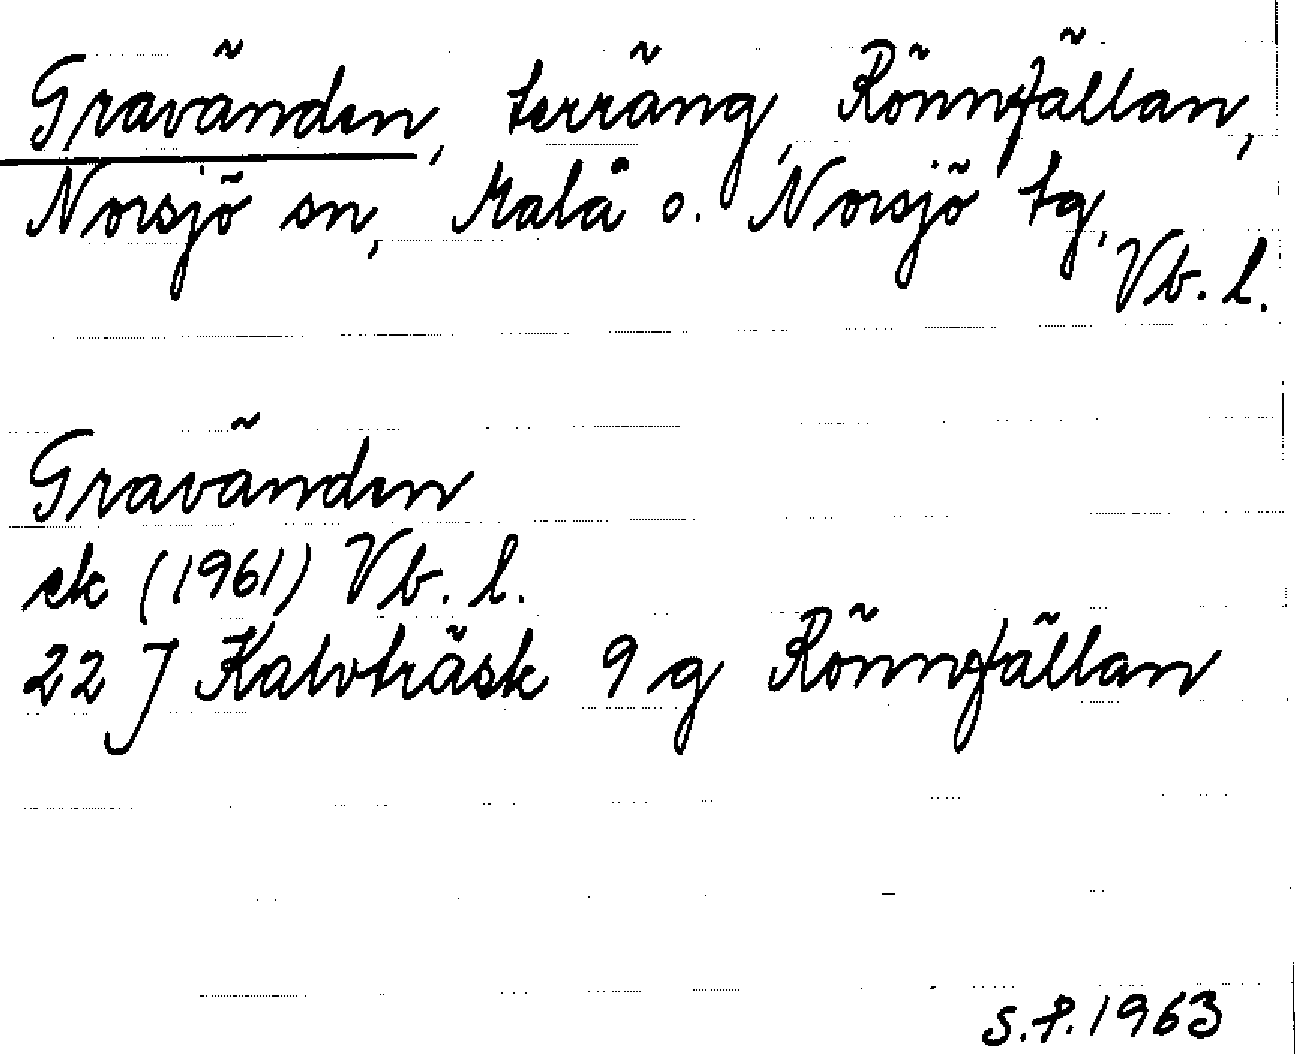 Gravänden, terräng, Rönnfällan,
Norsjö sn, Malå o. Norsjö tg,
Vb. l.
Gravänden
ek (1961) Vb. l.
22 J Kalvträsk 9 g Rönnfällan
S.P. 1963